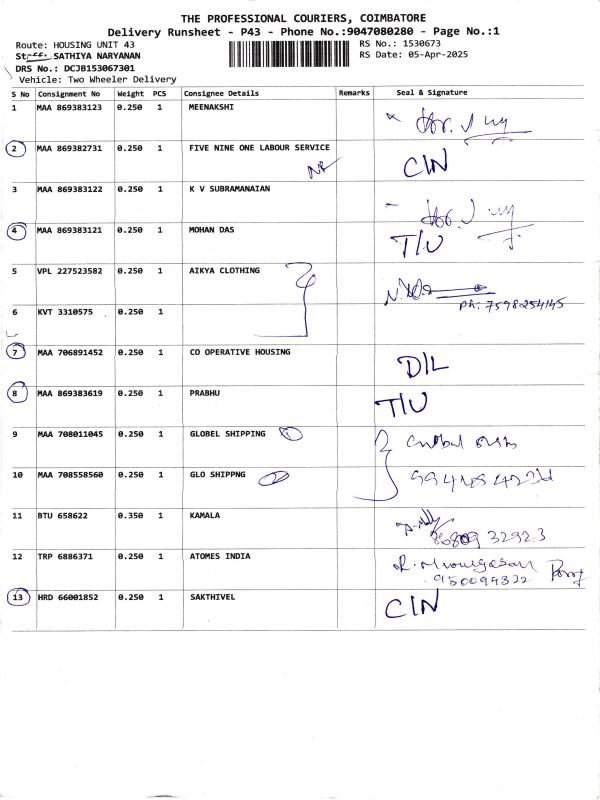 THE PROFESSIONAL COURIERS, COIMBATORE
Delivery Runsheet - P43 - Phone No.:9047080280 - Page No.:1
Route: HOUSING UNIT 43
RS No.: 1530673
Staff: SATHIYA NARYANAN
RS Date: 05-Apr-2025
DRS No.: DCJB153067301
Vehicle: Two Wheeler Delivery
S No Consignment No Weight PCS Consignee Details Remarks Seal & Signature
1 MAA 869383123 0.250 1 MEENAKSHI
2 MAA 869382731 0.250 1 FIVE NINE ONE LABOUR SERVICE CIN
3 MAA 869383122 0.250 1 K V SUBRAMANAIAN
4 MAA 869383121 0.250 1 MOHAN DAS T/U
5 VPL 227523582 0.250 1 AIKYA CLOTHING
Ph: 7598254145
6 KVT 3310575 0.250 1
7 MAA 706891452 0.250 1 CO OPERATIVE HOUSING D/L
8 MAA 869383619 0.250 1 PRABHU T/U
9 MAA 708011045 0.250 1 GLOBEL SHIPPING 1
10 MAA 708558560 0.250 1 GLO SHIPPNG 2
11 BTU 658622 0.350 1 KAMALA
12 TRP 6886371 0.250 1 ATOMES INDIA
13 HRD 66001852 0.250 1 SAKTHIVEL CIN